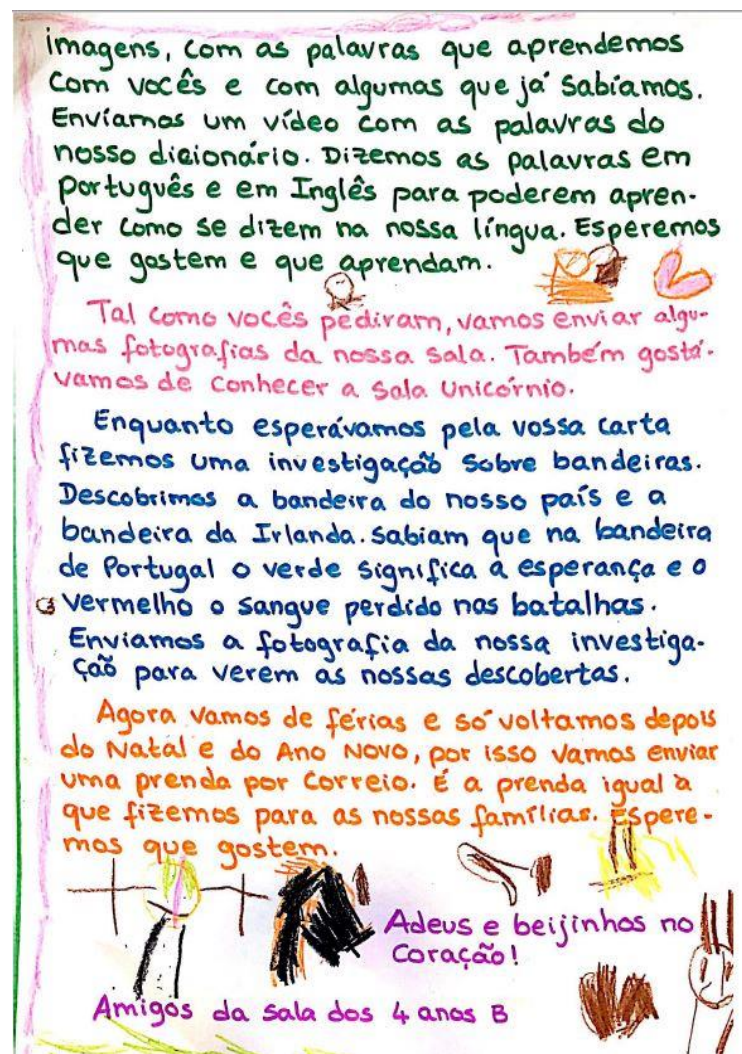 imagens, com as palavras que aprendemos
com vocês e com algumas que já sabíamos.
Enviamos um vídeo com as palavras do
nosso dicionário. Dizemos as palavras em
Português e em Inglês para poderem apren-
der como se dizem na nossa língua. Esperemos
que gostem e que aprendam.
Tal como vocês pediram, vamos enviar algu-
mas fotografias da nossa sala. Também gostá-
vamos de conhecer a sala Unicórnio.
Enquanto esperávamos pela vossa carta
fizemos uma investigação sobre bandeiras.
Descobrimos a bandeira do nosso país e a
bandeira da Irlanda. Sabiam que na bandeira
de Portugal o verde significa a esperança e o
vermelho o sangue perdido nas batalhas.
Enviamos a fotografia da nossa investiga-
ção para verem as nossas descobertas.
Agora vamos de férias e só voltamos depois
do Natal e do Ano Novo, por isso vamos enviar
uma prenda por correio. É a prenda igual à
que fizemos para as nossas famílias. Espere-
mos que gostem.
Adeus e beijinhos no
coração!
Amigos da sala dos 4 anos B